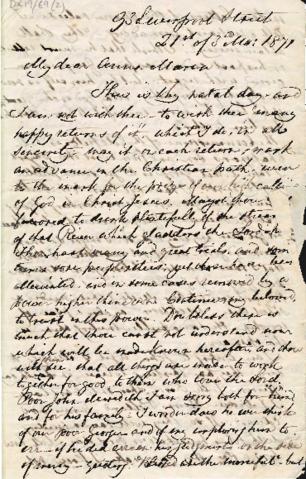 93 Liverpool Street
21st of 3rd Mo: 1871
My dear Anna Maria
This is thy natal day and
I am not with thee to wish thee "many
happy returns of it" which I do in all
sincerity may it on each return mark
an advance in the Christian path, even
to the mark for the prize of calling
of God in Christ Jesus. Mayst thou
favored to drink plentifully of the stream
of that River which gladdens the
Thou hast many and great trials, and some
times sore perplexities, yet have been
alleviated and in some cases removed by a
power higher than ours Continue my beloved
to trust in this power. Doubtless there is
much that thou canst not understand now
which will be made known hereafter, and thou
wilt see that all things are made to work
together for good to them who love the Lord.
Poor John Meredith I am sorry both for him
and for his family I wonder does he ever think
of our poor George and if we employing him to
err if he did err in his judgment on the side
of mercy - Blessed are the merciful - but